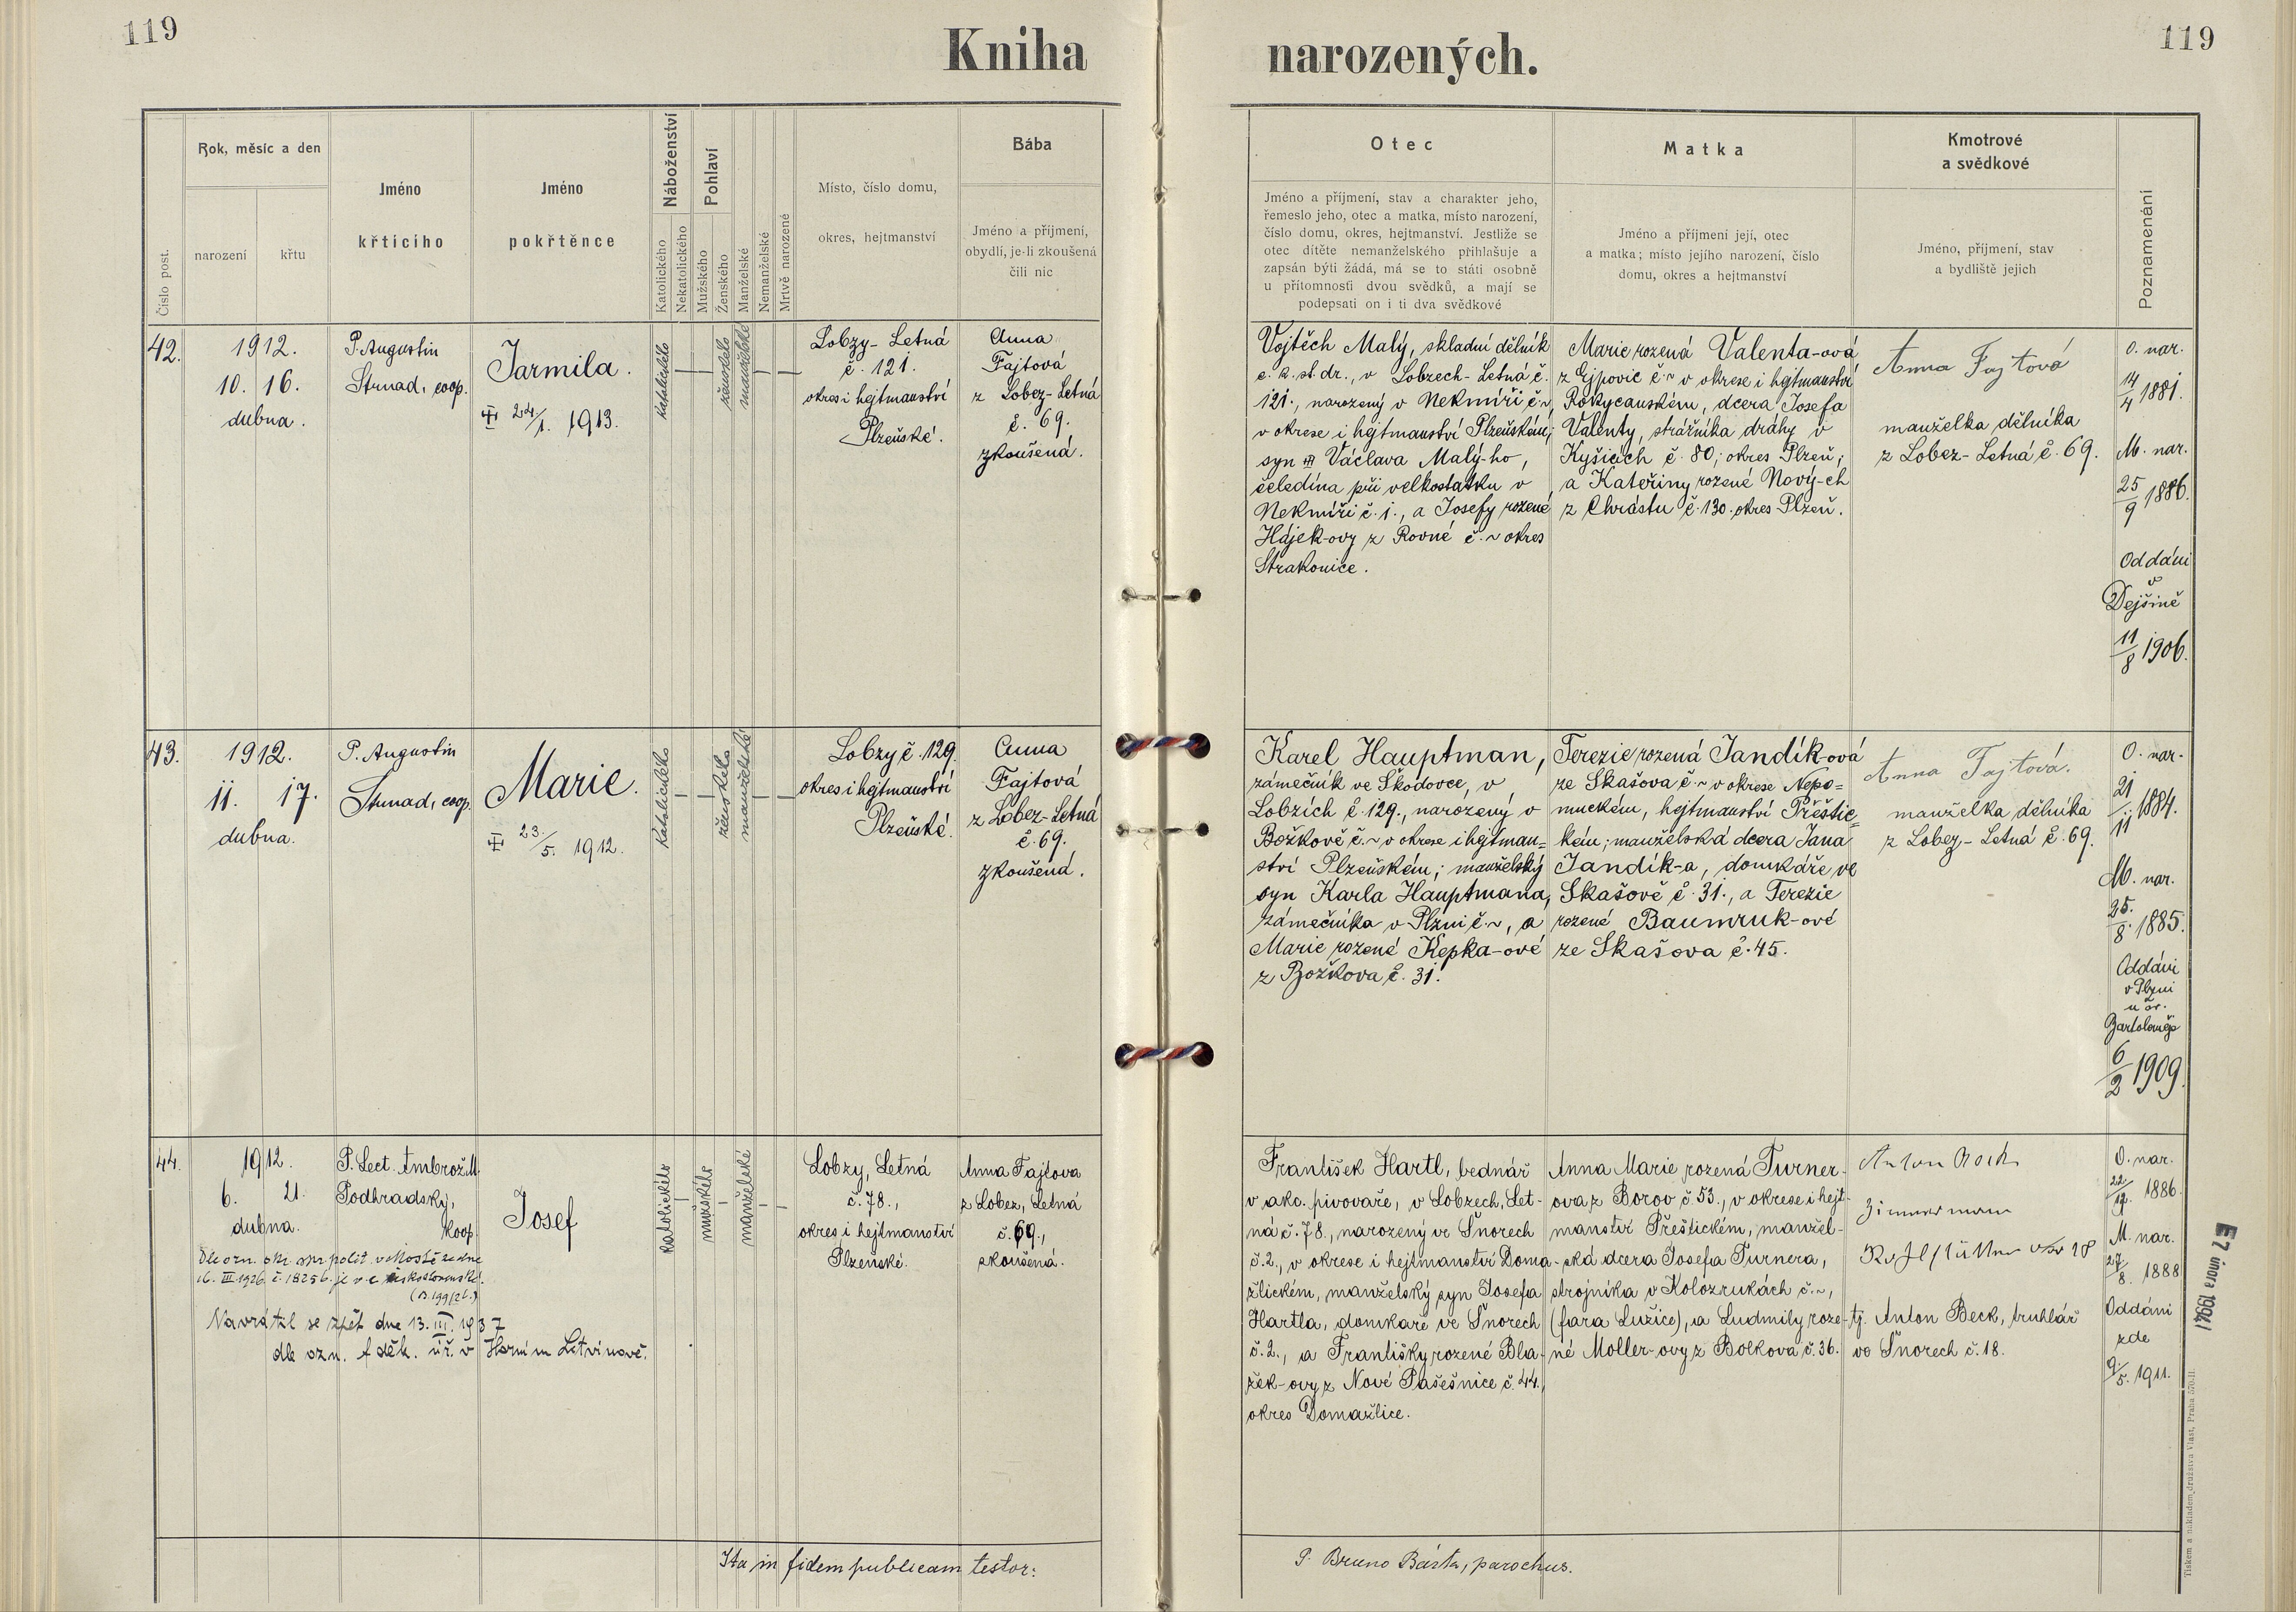 119
Kniha narozených.
119
Číslo post.
Rok, měsíc a den
narození
křtu
Jméno
křticího
Jméno
pokřtěnce
Náboženství
Katolického
Nekatolického
Pohlaví
Mužského
Ženského
Manželské
Nemanželské
Mrtvě narozené
Místo, číslo domu,
okres, hejtmanství
Bába
Jméno a příjmení,
obydlí, je-li zkoušená
čili nic
Otec
Jméno a příjmení, stav a charakter jeho,
řemeslo jeho, otec a matka, místo narození,
číslo domu, okres, hejtmanství. Jestliže se
otec dítěte nemanželského přihlašuje a
zapsán býti žádá, má se to státi osobně
u přítomnosti dvou svědků, a mají se
podepsati on i ti dva svědkové
Matka
Jméno a příjmení její, otec
a matka; místo jejího narození, číslo
domu, okres a hejtmanství
Kmotrové
a svědkové
Jméno, příjmení, stav
a bydliště jejich
Poznamenání
42.
1912.
10. 16.
dubna.
P. Augustin
Strnad, coop.
Jarmila.
24/1. 1913.
katolického
ženského
manželské
Lobzy-Letná
č. 121.
okres i hejtmanství
Plzeňské.
Anna
Fajtová
z Lobez-Letná
č. 69.
zkoušená.
Vojtěch Malý, skladní dělník
c. k. st. dr., v Lobzech-Letná č.
121., narozený v Nekmíři č. ~
v okrese i hejtmanství Plzeňském;
syn Václava Malý-ho,
čeledína při velkostatku v
Nekmíři č. 1., a Josefy rozené
Hájek-ovy z Rovné č. ~ okres
Strakonice.
Marie rozená Valenta-ová
z Ejpovic č. ~ v okrese i hejtmanství
Rokycanském, dcera Josefa
Valenty, strážníka dráhy v
Kyšicích č. 80; okres Plzeň;
a Kateřiny rozené Nový-ch
z Chrástu č. 130. okres Plzeň.
Anna Fajtová
manželka dělníka
z Lobez-Letná č. 69.
O. nar.
14/4 1881.
M. nar.
25/9 1886.
Oddáni
v
Dejšině
11/8 1906.
43.
1912.
11. 17.
dubna.
P. Augustin
Strnad, coop.
Marie.
23./5. 1912.
katolického
ženského
manželské
Lobzy č. 129.
okres i hejtmanství
Plzeňské.
Anna
Fajtová
z Lobez-Letná
č. 69.
zkoušená.
Karel Hauptman,
zámečník ve Škodovce, v
Lobzích č. 129., narozený v
Božkově č. ~ v okrese i hejtman=
ství Plzeňském; manželský
syn Karla Hauptmana,
zámečníka v Plzni č. ~, a
Marie rozené Kepka-ové
z Božkova č. 31.
Terezie rozená Jandík-ová
ze Skašova č. ~ v okrese Nepo=
muckém, hejtmanství Přeštic=
kém; manželská dcera Jana
Jandík-a, domkáře ve
Skašově č. 31., a Terezie
rozené Baumruk-ové
ze Skašova č. 45.
Anna Fajtová.
manželka dělníka
z Lobez-Letná č. 69.
O. nar.
21/11 1884.
M. nar.
25./8. 1885.
Oddáni
v Plzni
u sv.
Bartoloměje
6/2 1909.
44.
1912.
6. 21.
dubna.
P. Lect. Ambrož M.
Podhradský,
koop.
Josef
katolického
mužského
manželské
Lobzy, Letná
č. 78.,
okres i hejtmanství
Plzeňské.
Anna Fajtova
z Lobez, Letná
č. 69.,
zkoušená.
Dle ozn. okr. spr. polit. v Mostě ze dne
16. III. 1926, č. 18256. je v c. československé.
(B. 199/26.)
Navrátil se zpět dne 13. III. 1937
dle ozn. f. děk. úř. v Horním Litvínově.
František Hartl, bednář
v akc. pivovaře, v Lobzech, Let-
ná č. 78., narozený ve Šnorech
č. 2., v okrese i hejtmanství Doma-
žlickém, manželský syn Josefa
Hartla, domkáře ve Šnorech
č. 2., a Františky rozené Bla-
žek-ovy z Nové Pašešnice č. 44.,
okres Domažlice.
Anna Marie rozená Turner-
ova z Borov č. 53., v okrese i hejt-
manství Přeštickém, manžel-
ská dcera Josefa Turnera,
strojníka v Kolozrukách č. ~,
(fara Lužice), a Ludmily roze-
né Moller-ovy z Bolkova č. 36.
Anton
18
tj. Anton Beck, truhlář
ve Šnorech č. 18.
O. nar.
22/12. 1886.
M. nar.
27/8. 1888
Oddáni
zde
9/5. 1911.
Ita in fidem publicam testor:
P. Bruno Bárta, parochus.
E7 února 1994
Tiskem a nákladem družstva Vlast, Praha 570-II.